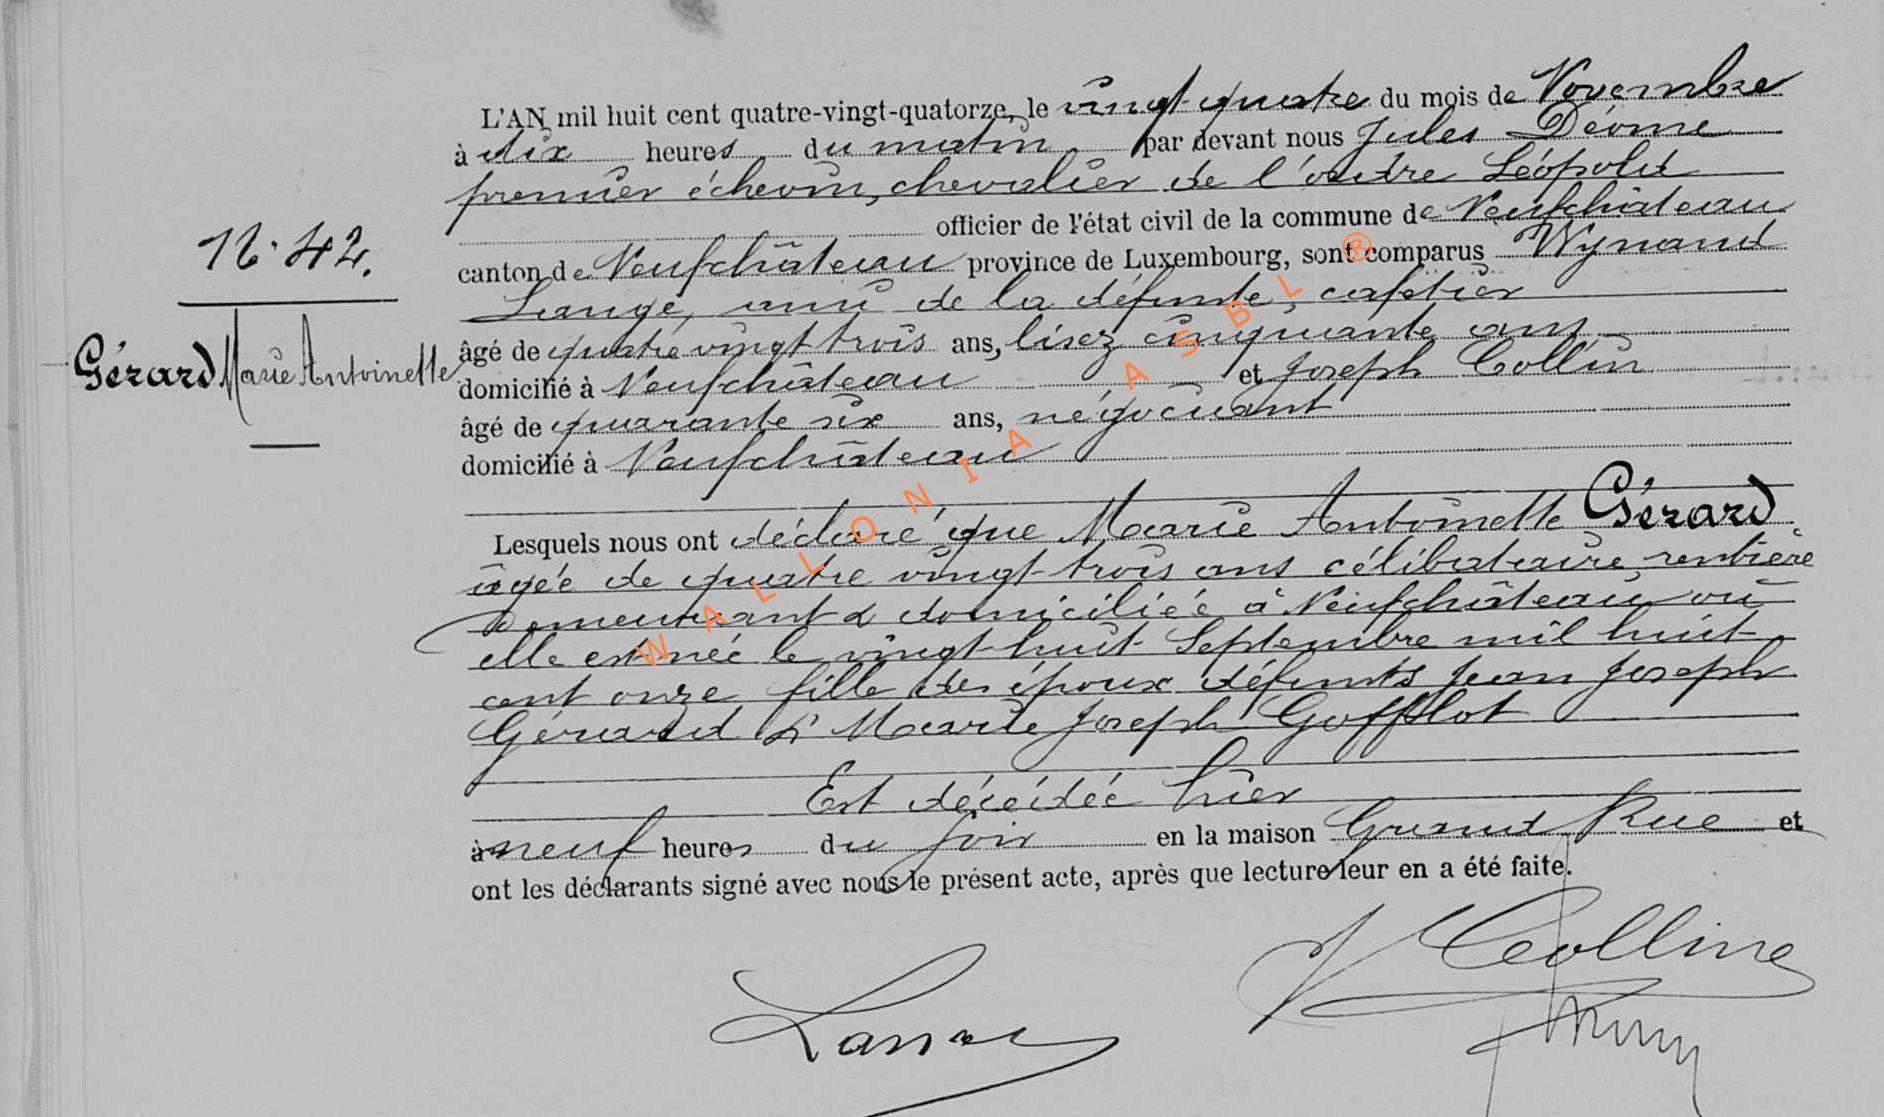 L'AN mil huit cent quatre-vingt-quatorze, le vingt-quatre du mois de Novembre
à dix heures du matin par devant nous Jules Déome
premier échevin, chevalier de l'ordre Léopold
officier de l'état civil de la commune de Neufchâteau
canton de Neufchâteau province de Luxembourg, sont comparus Wynand
Lange, ami de la défunte, cafetier
âgé de quatre vingt trois ans, lisez cinquante ans
domicilié à Neufchâteau et Joseph Collin
âgé de quarante six ans, négociant
domicilié à Neufchâteau
N. 42.
Gérard Marie Antoinette
Lesquels nous ont déclaré que Marie Antoinette Gérard
âgée de quatre vingt-trois ans célibataire, rentière
demeurant & domiciliée à Neufchâteau où
elle est née le vingt-huit Septembre mil huit
cent onze fille des époux défunts Jean Joseph
Gérard & Marie Joseph Gofflot
Est décédée hier
à neuf heures du soir en la maison Grand Rue et
ont les déclarants signé avec nous le présent acte, après que lecture leur en a été faite.
J Colline
WALLONIA ASBL ®